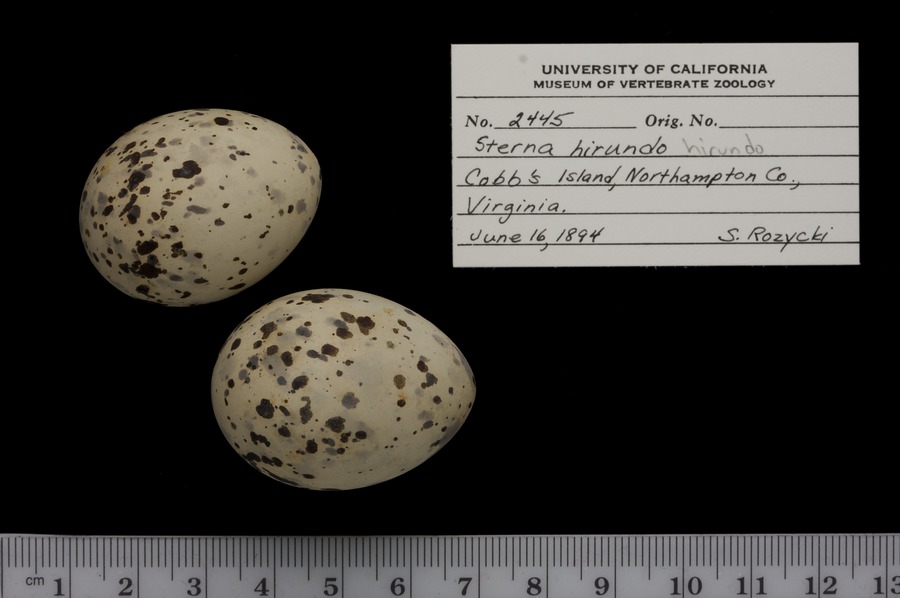 UNIVERSITY OF CALIFORNIA
MUSEUM OF VERTEBRATE ZOOLOGY
No. 2445 Orig. No.
Sterna hirundo hirundo
Cobb's Island, Northampton Co.,
Virginia.
June 16, 1894 S. Rozycki
cm 1 2 3 4 5 6 7 8 9 10 11 12 13